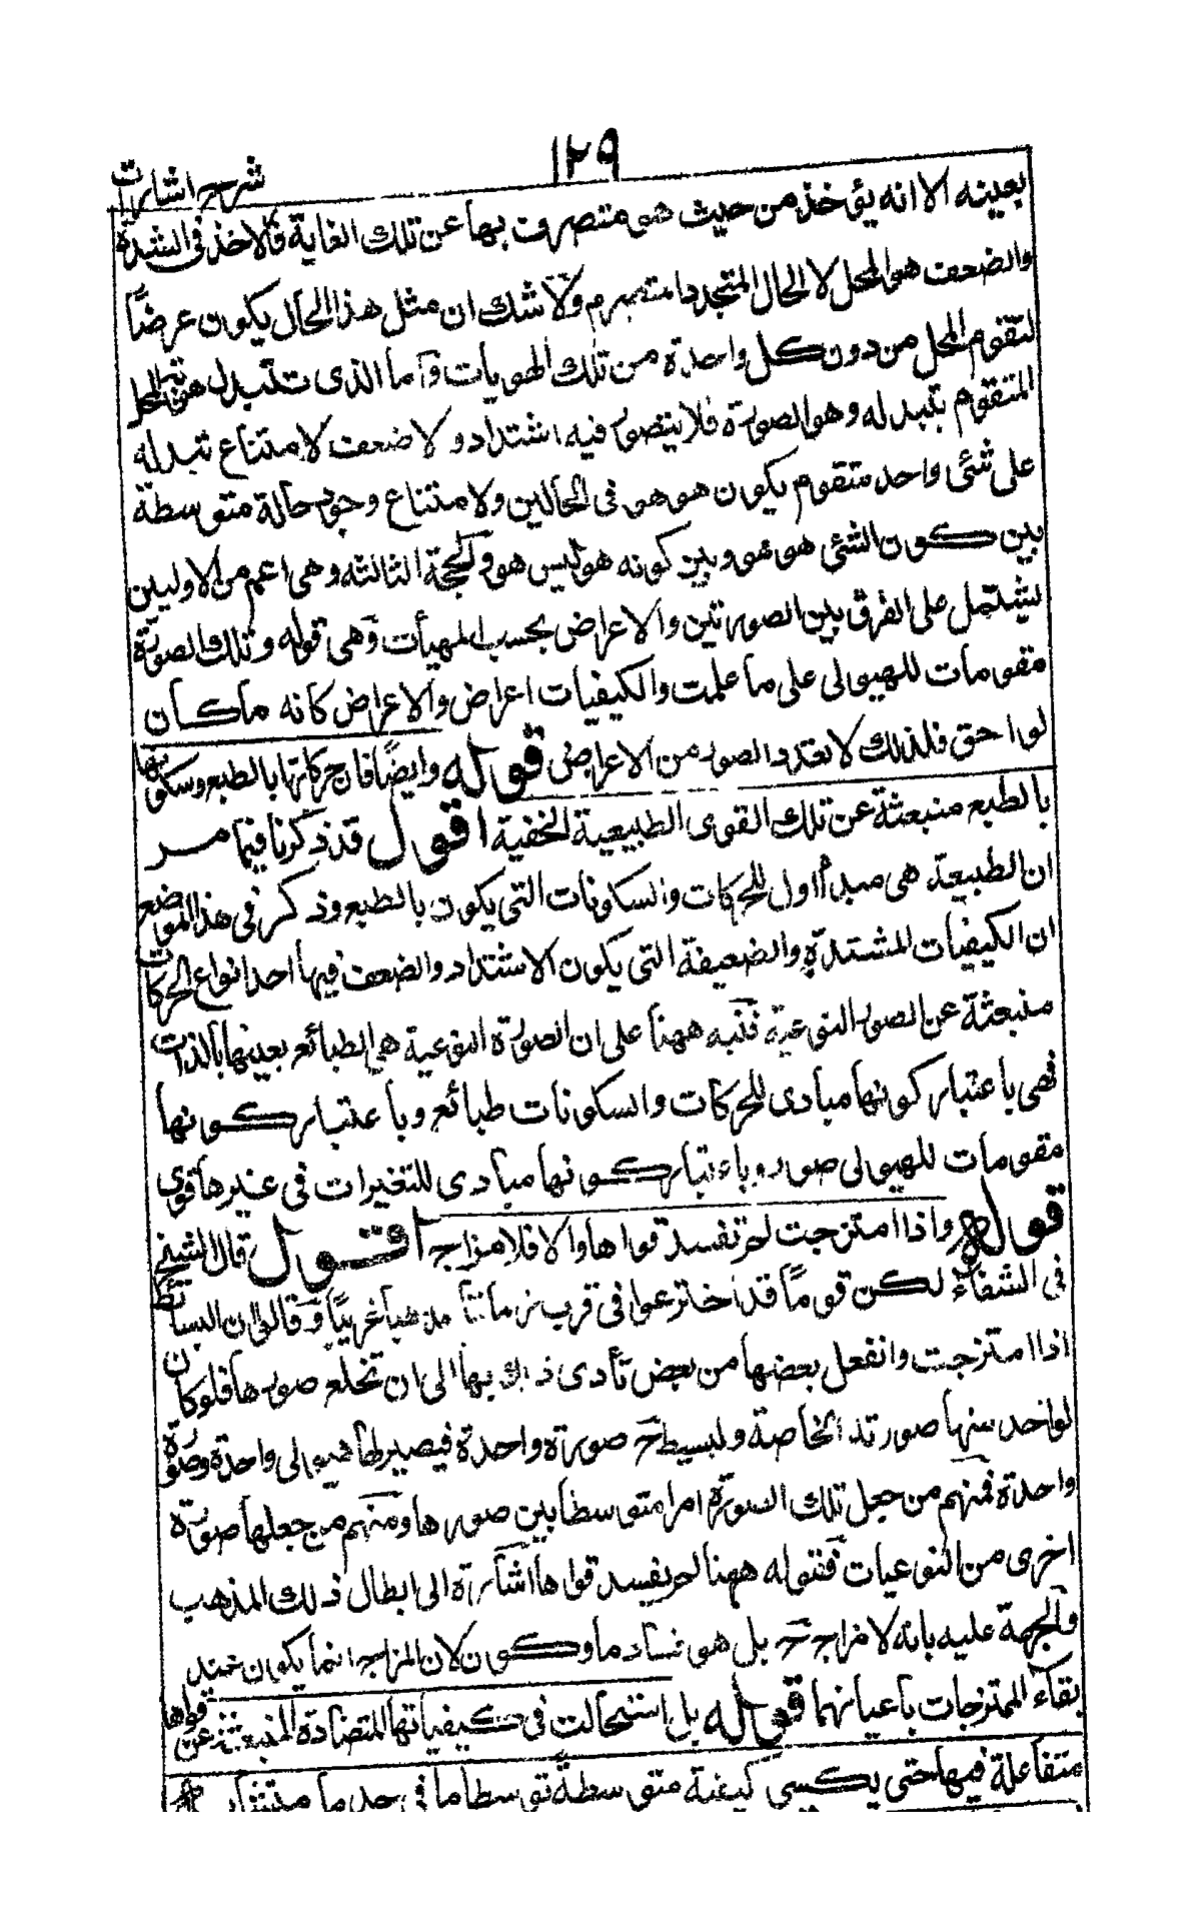 ١٢٩
شرح اشارات
بعينه الا انه يؤخذ من حيث هو متصرف بها عن تلك الغاية فالاخذ فى الشدة
والضعف هو المحل لا الحال المتجدد المتصرم ولا شك ان مثل هذا الحال يكون عرضاً
لتقوم المحل من دون كل واحدة من تلك الهويات وأما الذى تتبدل هوية المحل
المتقوم بتبدله وهو الصورة فلا يتصور فيه اشتداد ولا ضعف لامتناع تبدله
على شئى واحد متقوم يكون هو هو فى الحالين ولامتناع وجود حالة متوسطة
بين كون الشئى هو هو وبين كونه هو ليس هو والحجة الثالثه وهى اعم من الاوليين
يشتمل على الفرق بين الصورتين والاعراض بحسب المهيأت وهى قوله وتلك الصورة
مقومات للهيولى على ما علمت والكيفيات اعراض والاعراض كانه ماكان
لواحق فلذلك لا يعدد الصور من الاعراض قوله وايضاً فان حركاتها بالطبع وسكوناتها
بالطبع منبعثة عن تلك القوى الطبيعية الخفية اقول قد ذكرنا فيما مر
ان الطبيعة هى مبدأ اول للحركات والسكونات التى يكون بالطبع وذكر فى هذا الموضع
ان الكيفيات المشتدة والضعيفة التى يكون الاشتداد والضعف فيها احد انواع الحركات
منبعثة عن الصور النوعية فنبه ههنا على ان الصورة النوعية هى الطبائع بعينها بالذات
فهى باعتبار كونها مبادى للحركات والسكونات طبائع وباعتبار كونها
مقومات للهيولى صور وباعتبار كونها مبادى للتغيرات فى غيرها قوى
قوله واذا امتزجت لم تفسد قواها والا فلا مزاج اقول قال الشيخ
فى الشفاء لكن قوماً قد اخترعوا فى قرب زماننا مذهباً غريباً وقالوا ان البسائط
اذا امتزجت وانفعل بعضها من بعض تأدى ذلك بها الى ان تخلع صورها فلو كان
لواحد منها صورته الخاصة وليبسط ح صورة واحدة فيصير لها هيولى واحدة وصورة
واحدة فمنهم من جعل تلك الصورة امرا متوسطا بين صورها ومنهم من جعلها صورة
اخرى من النوعيات فقوله ههنا لم يفسد قواها اشارة الى ابطال ذلك المذهب
والجهة عليه بانه لا مزاج ح بل هو فساد ما وكون لان المزاج انما يكون عند
بقاء الممتزجات باعيانها قوله بل استحالت فى كيفياتها المتضادة المنبعثة عن قواها
متفاعلة فيها حتى يكسى كيفية متوسطة توسطا ما فى حد ما